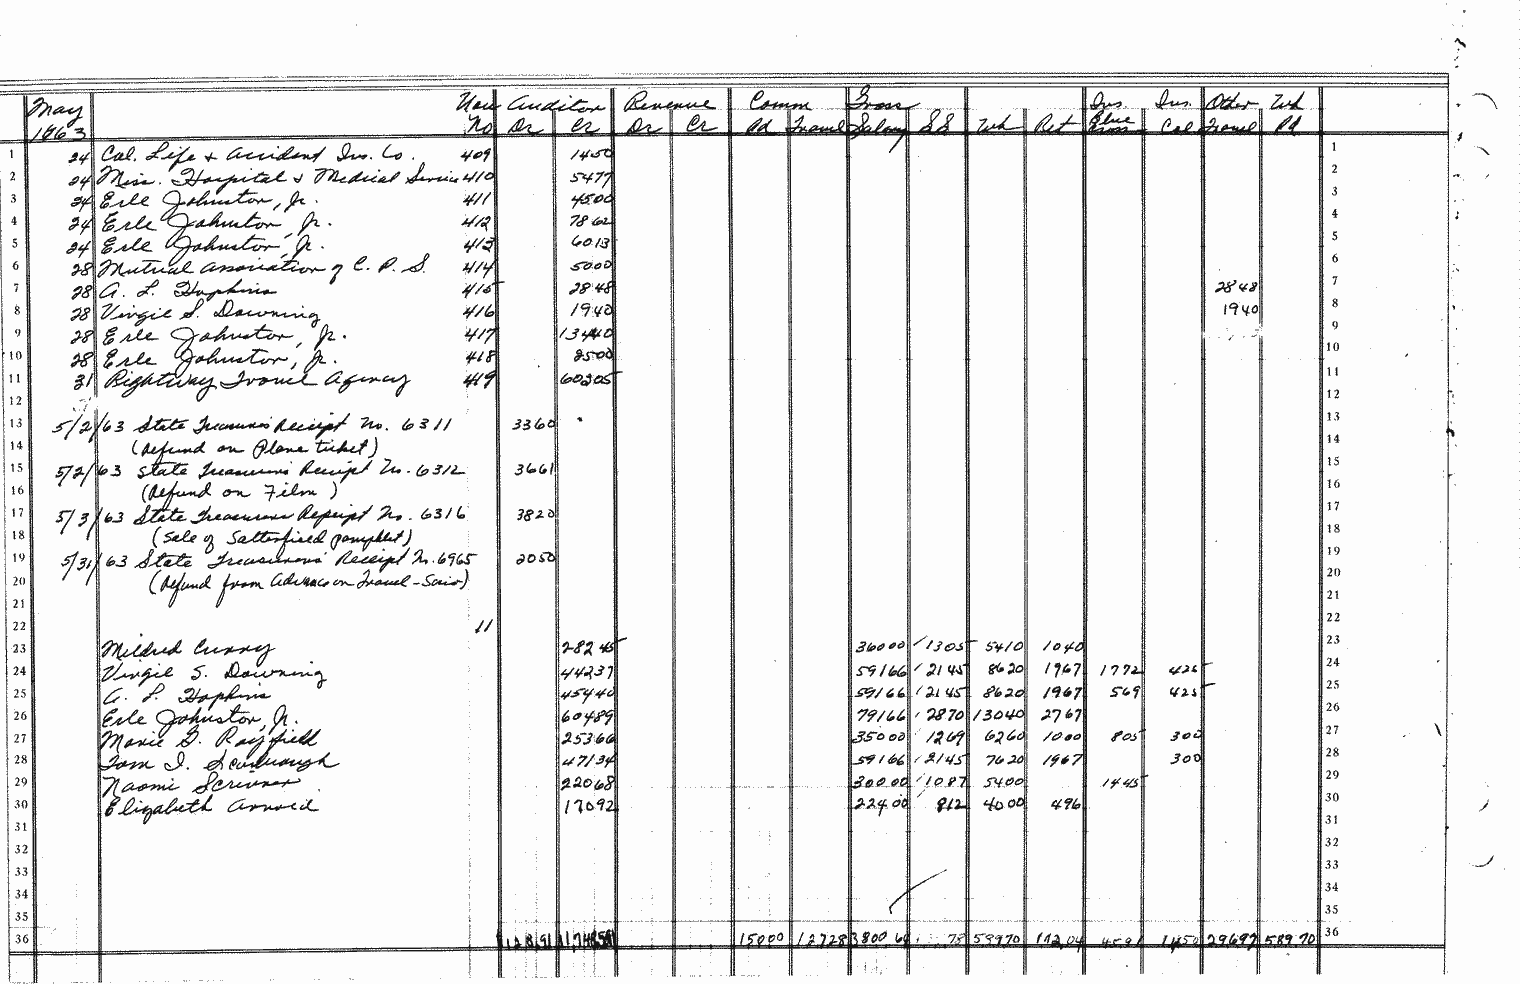 May Vou Auditor Revenue Comm Gross Ins Ins Other Wh
1963 No Dr Cr Dr Cr Pd Travel Salary SS Wh Ret Blue Cross Col Travel Pd
1 24 Col. Life + Accident Ins. Co. 409 1450 1
2 24 Miss. Hospital & Medical Service 410 5477 2
3 24 Erle Johnston, Jr. 411 4500 3
4 24 Erle Johnston, Jr. 412 7862 4
5 24 Erle Johnston, Jr. 413 6013 5
6 28 Mutual Association of C. P. S. 414 5000 6
7 28 A. L. Hopkins 415 2848 2848 7
8 28 Virgil S. Downing 416 1940 1940 8
9 28 Erle Johnston, Jr. 417 13440 9
10 28 Erle Johnston, Jr. 418 2500 10
11 31 Rightway Travel Agency 419 60205 11
12 12
13 5/2/63 State Treasurers Receipt No. 6311 3360 13
14 (Refund on Plane ticket) 14
15 5/2/63 State Treasurers Receipt No. 6312 3661 15
16 (Refund on Film) 16
17 5/3/63 State Treasurers Receipt No. 6316 3820 17
18 (Sale of Satterfield pamphlet) 18
19 5/31/63 State Treasurers' Receipt No. 6965 2050 19
20 (Refund from Advance on Travel - Scar) 20
21 21
22 11 22
23 Mildred Curry 28245 36000 1305 5410 1040 23
24 Virgil S. Downing 44237 59166 2145 8620 1967 1772 425 24
25 A. L. Hopkins 45440 59166 2145 8620 1967 569 425 25
26 Erle Johnston, Jr. 60489 79166 2870 13040 2767 26
27 Marie G. Rayfield 25366 35000 1269 6260 1000 805 300 27
28 Tom I. Scarbrough 47134 59166 2145 7620 1967 300 28
29 Naomi Scrivner 22068 30000 1087 5400 1445 29
30 Elizabeth Arnold 17092 22400 812 4000 496 30
31 31
32 32
33 33
34 34
35 35
36 12891 15000 12728 3800 64 78 58970 112.04 4591 1450 29697 589 70 36